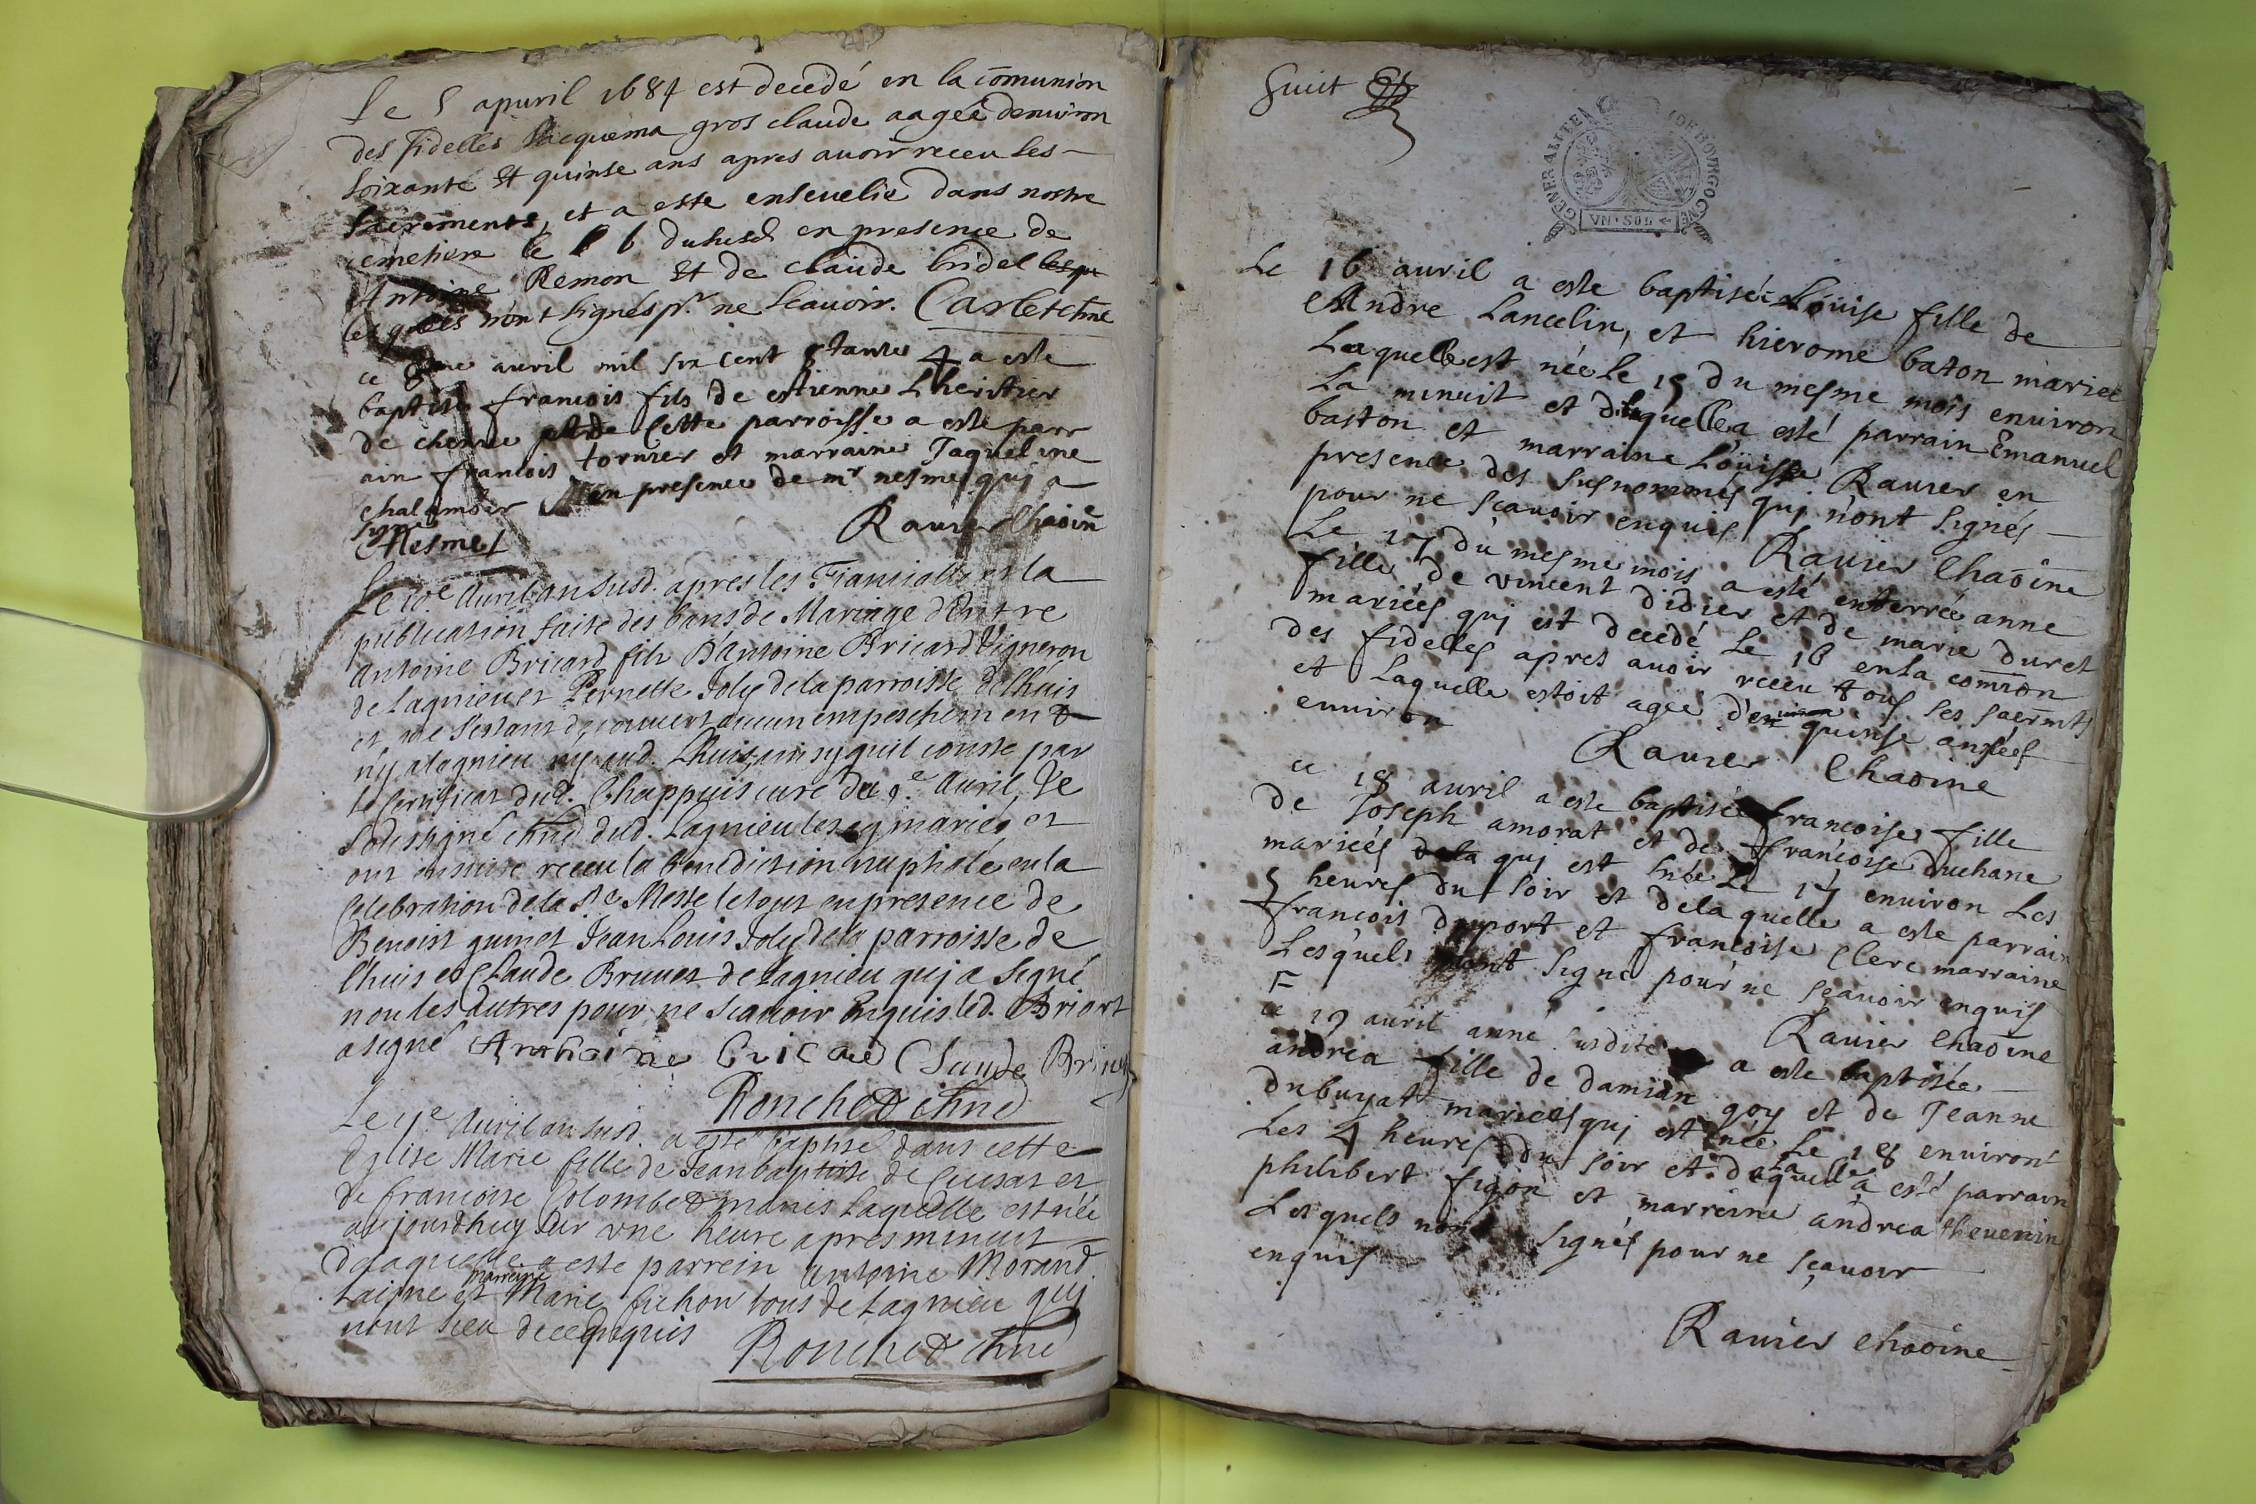 Le 5 apuril 1684 est decedé en la cōmunion
des fidelles Jacquema gros claude aagée denuiron
soixante et quinse ans apres auoir receu les
sacrements, et a este enseuelie dans nostre
cemetiere le 6 dususd en presence de
Antoine Remon et de claude bridel
lesquels n'ont signés pr. ne scauoir. Carlet chne
ce auril mil six cent 8tante 4 a este
baptise francois fils de estienne Lheritier
de cette parroisse a este parr
ain francois tornier et marraine Jaqueline
chalamoir en presence de mr nesmes qui a
signe Rauier chaoine
Nesmes
Le 10e Auril an susd. apres les Fiancialles et la
publication faite des bans de Mariage d'Entre
Antoine Bricard fils D'antoine Bricard Vigneron
de Lagnieu et Pernette Joly de la parroisse de Lhuis
et ne s'estant decouuert aucun empeschement
ny a lagnieu ny aud. Lhuis ainsy quil conste par
le Certificat dud. Chappuis curé du 9e Auril, Je
soussigné chne dud. Lagnieu les ay mariés et
ont ensuite receu la benediction nuptiale en la
Celebration de la Ste Messe le tout en presence de
Benoist guinet Jean Louis Joly de la parroisse de
Lhuis et Claude Brunet de Lagnieu qui a signé
non les autres pour ne scauoir Enquis led. Bricart
a signé Anthoine Bricard Claude Brunet
Ronchet chne
Le 11e Auril an susd. a esté baptisé dans cette
Eglise Marie fille de Jean baptiste de Cuisat et
de francoise Colombet mariés Laquelle est née
aujourdhuy sur vne heure apres minuit
de laquelle a este parrein Antoine Morand
Laisne et marreine Marie fichon tous de Lagnieu qui
n'ont sceu de ce enquis Ronchet chne
Suit
GENERALITE DE BOVRGOGNE
VN·SOL
Le 16 auril a este baptisée Louise fille de
Andre Lancelin, et hierome baton mariee
Laquelle est née le 15 du mesme mois enuiron
La minuit et de laquelle a esté parrain Emanuel
baston et marraine Loüisse Rauier en
presence des susnommés qui n'ont signés
pour ne scauoir enquis Rauier Chaoine
Le 17 du mesme mois a esté enterrée anne
fille de vincent didier et de marie duret
mariées qui est decedé Le 16 en la comion
des fidelles apres auoir receu tous ses sacrmts
et Laquelle estoit agée d'en quinse années
enuiron
Rauier Chaoine
ce 18 auril a este baptisée francoise fille
de Joseph amorat et de francoise duchane
mariées qui est née Le 17 enuiron Les
5 heures du soir et de la quelle a este parrain
francois duport et francoise Clerc marraine
Lesquels n'ont signé pour ne sçauoir enquis
Rauier Chaoine
ce 19 auril anné susdite a este baptisée
andrea fille de damian goy et de Jeanne
dubuyat mariees qui est née Le 18 enuiron
Les 4 heures du soir et de la quelle a esté parrain
philibert figon et marreine andrea theuenin
Lesquels n'ont signés pour ne sçauoir
enquis
Rauier chaoine